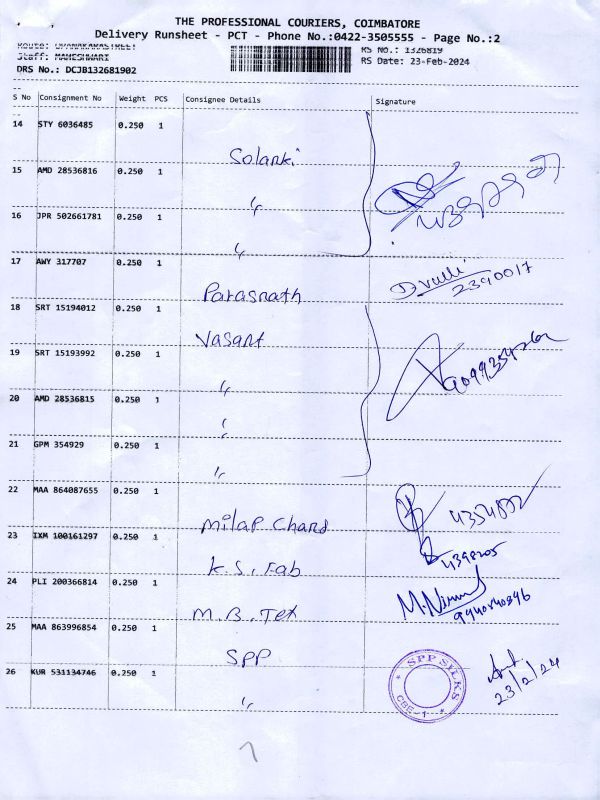 THE PROFESSIONAL COURIERS, COIMBATORE
Delivery Runsheet - PCT - Phone No.:0422-3505555 - Page No.:2
Staff: MAHESHWARI
RS No.: 1326819
DRS No.: DCJB132681902
RS Date: 23-Feb-2024
S No Consignment No Weight PCS Consignee Details Signature
14 STY 6036485 0.250 1
Solanki
15 AMD 28536816 0.250 1
"
16 JPR 502661781 0.250 1
"
17 AWY 317707 0.250 1
Parasnath
2390017
18 SRT 15194012 0.250 1
Vasant
19 SRT 15193992 0.250 1
"
20 AMD 28536815 0.250 1
"
21 GPM 354929 0.250 1
"
22 MAA 864087655 0.250 1
Milap Chand
23 IXM 100161297 0.250 1
4398205
K.S. Fab
24 PLI 200366814 0.250 1
M.B. Tex
9940840846
25 MAA 863996854 0.250 1
SPP
26 KUR 531134746 0.250 1
"
SPP SILKS
CBE-1
23/2/24